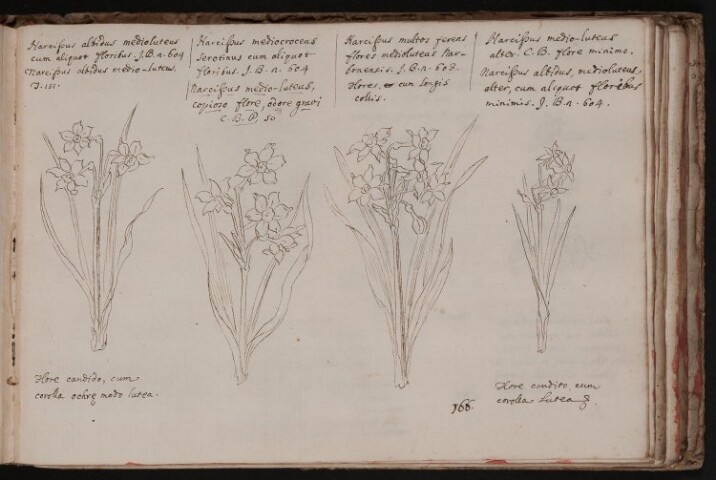 Narcissus albidus medioluteus
cum aliquot floribus. J.B.n. 604
Narcissus albidus medio-luteus.
Narcissus mediocroceus
serotinus cum aliquot
floribus. J.B.n. 604
Narcissus medio-luteus,
copioso flore, odore gravi
C.B.P. 50
Narcissus multos ferens
flores medioluteus Nar-
bonensis. J.B.n. 602.
Flores, cum longis
collis.
Narcissus medio-luteus
alter. C.B. flore minimo.
Narcissus albidus, medioluteus,
alter, cum aliquot floribus
minimis. J.B.n. 604.
Flore candido, cum
corolla ochrę modo lutea.
166.
Flore candido, cum
corolla lutea